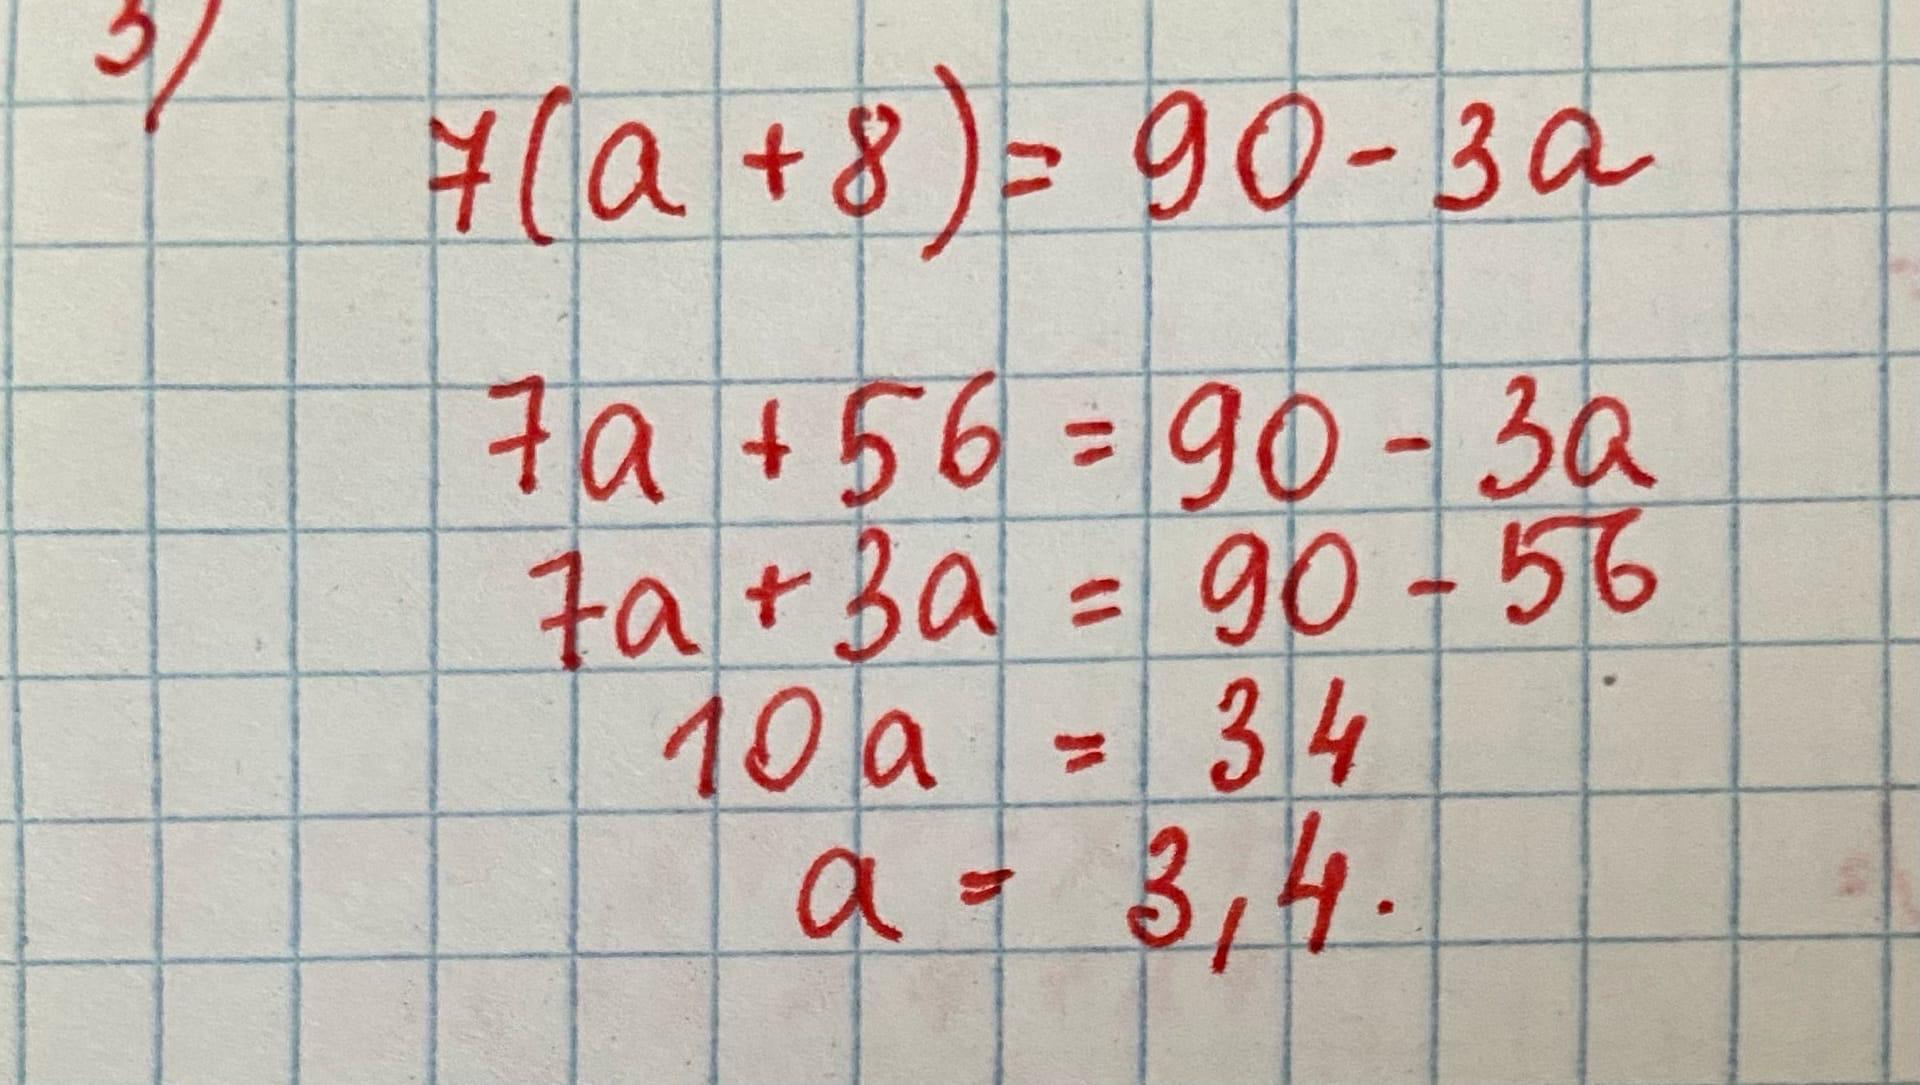 3)
7(a + 8) = 90 - 3a
7a + 56 = 90 - 3a
7a + 3a = 90 - 56
10a = 34
a = 3,4.